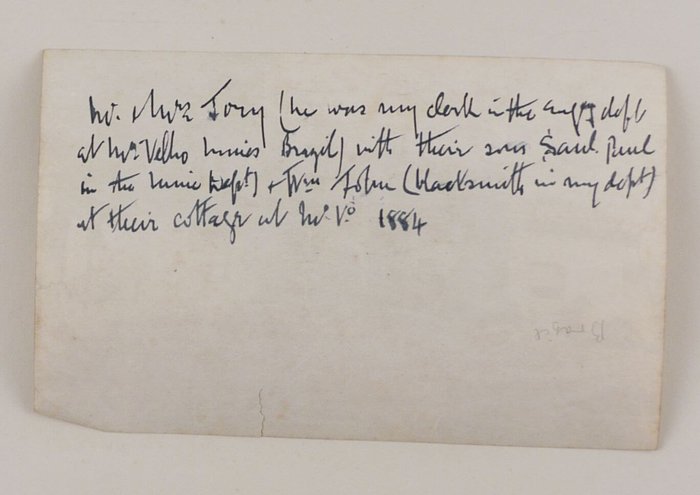 Mr. & Mrs Tory (he was my clerk in the eng dept
at Mo Velho mines Brazil) with their sons Saul. Paul
in the mine Dept) & Wm John (blacksmith in my dept)
at their cottage at Mo. Vo 1884
Brazil